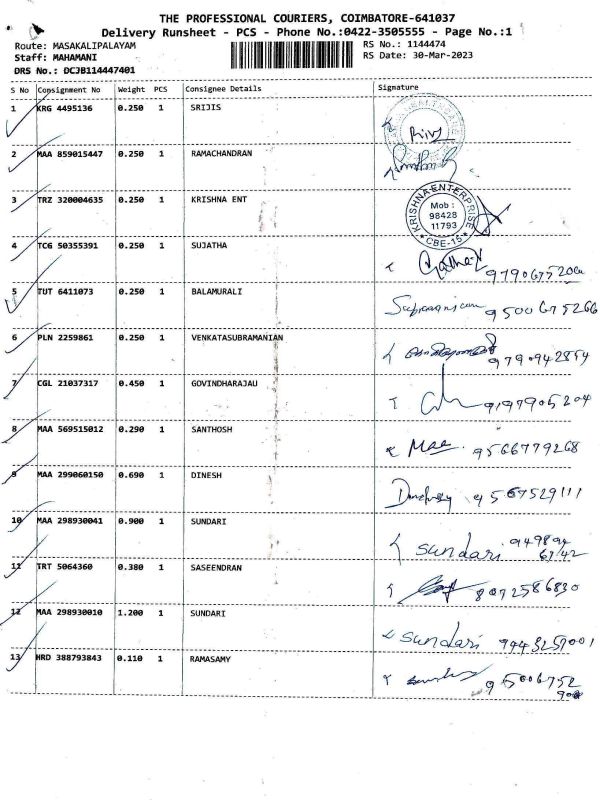 THE PROFESSIONAL COURIERS, COIMBATORE-641037
Delivery Runsheet - PCS - Phone No.:0422-3505555 - Page No.:1
Route: MASAKALIPALAYAM RS No.: 1144474
Staff: MAHAMANI RS Date: 30-Mar-2023
DRS No.: DCJB114447401
S No Consignment No Weight PCS Consignee Details Signature
1 KRG 4495136 0.250 1 SRIJIS
2 MAA 859015447 0.250 1 RAMACHANDRAN
3 TRZ 320004635 0.250 1 KRISHNA ENT
KRISHNA ENTERPRISE
Mob :
98428
11793
* CBE-15 *
4 TCG 50355391 0.250 1 SUJATHA
5 TUT 6411073 0.250 1 BALAMURALI 9500675266
6 PLN 2259861 0.250 1 VENKATASUBRAMANIAN
7 CGL 21037317 0.450 1 GOVINDHARAJAU
8 MAA 569515012 0.290 1 SANTHOSH 9566779268
9 MAA 299060150 0.690 1 DINESH 9567529111
10 MAA 298930041 0.900 1 SUNDARI sundari
11 TRT 5064360 0.380 1 SASEENDRAN 8072586830
12 MAA 298930010 1.200 1 SUNDARI sundari
13 HRD 388793843 0.110 1 RAMASAMY